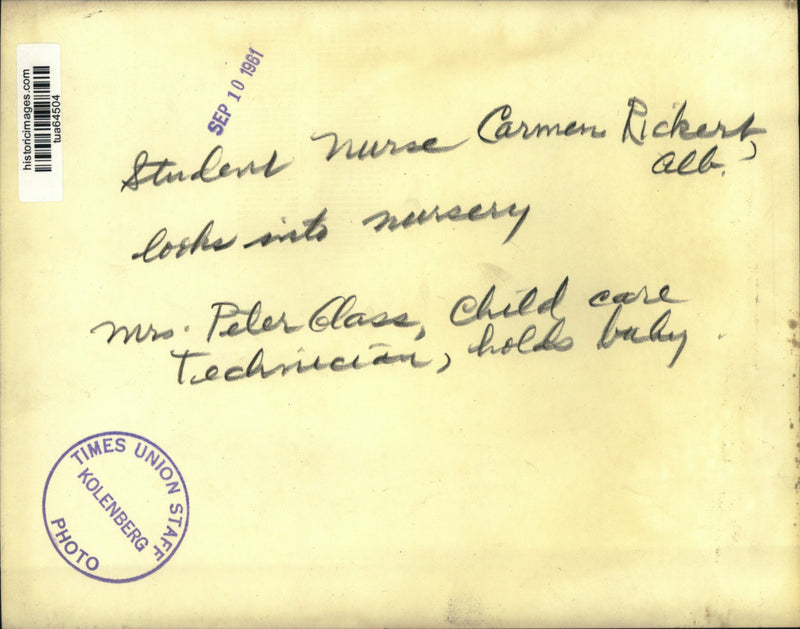 historicimages.com
tua64504
SEP 10 1961
Student nurse Carmen Rickert,
Alb.
looks into nursery
Mrs. Peter Glass, Child care
Technician, holds baby.
TIMES UNION STAFF
KOLENBERG
PHOTO